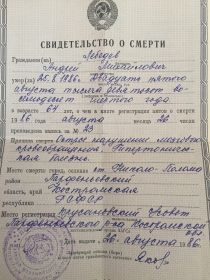 СВИДЕТЕЛЬСТВО О СМЕРТИ
Гражданин(ка) Лебедев
Андрей Михайлович
умер(ла) 25.8.1986г. Двадцать пятого
августа тысяча девятьсот
восемьдесят шестого года
в возрасте 67 лет, о чем в книге регистрации актов о смерти
19 86 года августа месяца 26 числа
произведена запись за № 23
Причина смерти Острое нарушение мозгового
кровообращения Гипертоничес-
кая болезнь
Место смерти: город, селение
район Парфеньевский
область, край Костромская
республика РСФСР
Место регистрации
Парфеньевского р-на Костромской
Дата выдачи 26 августа 1986 г.